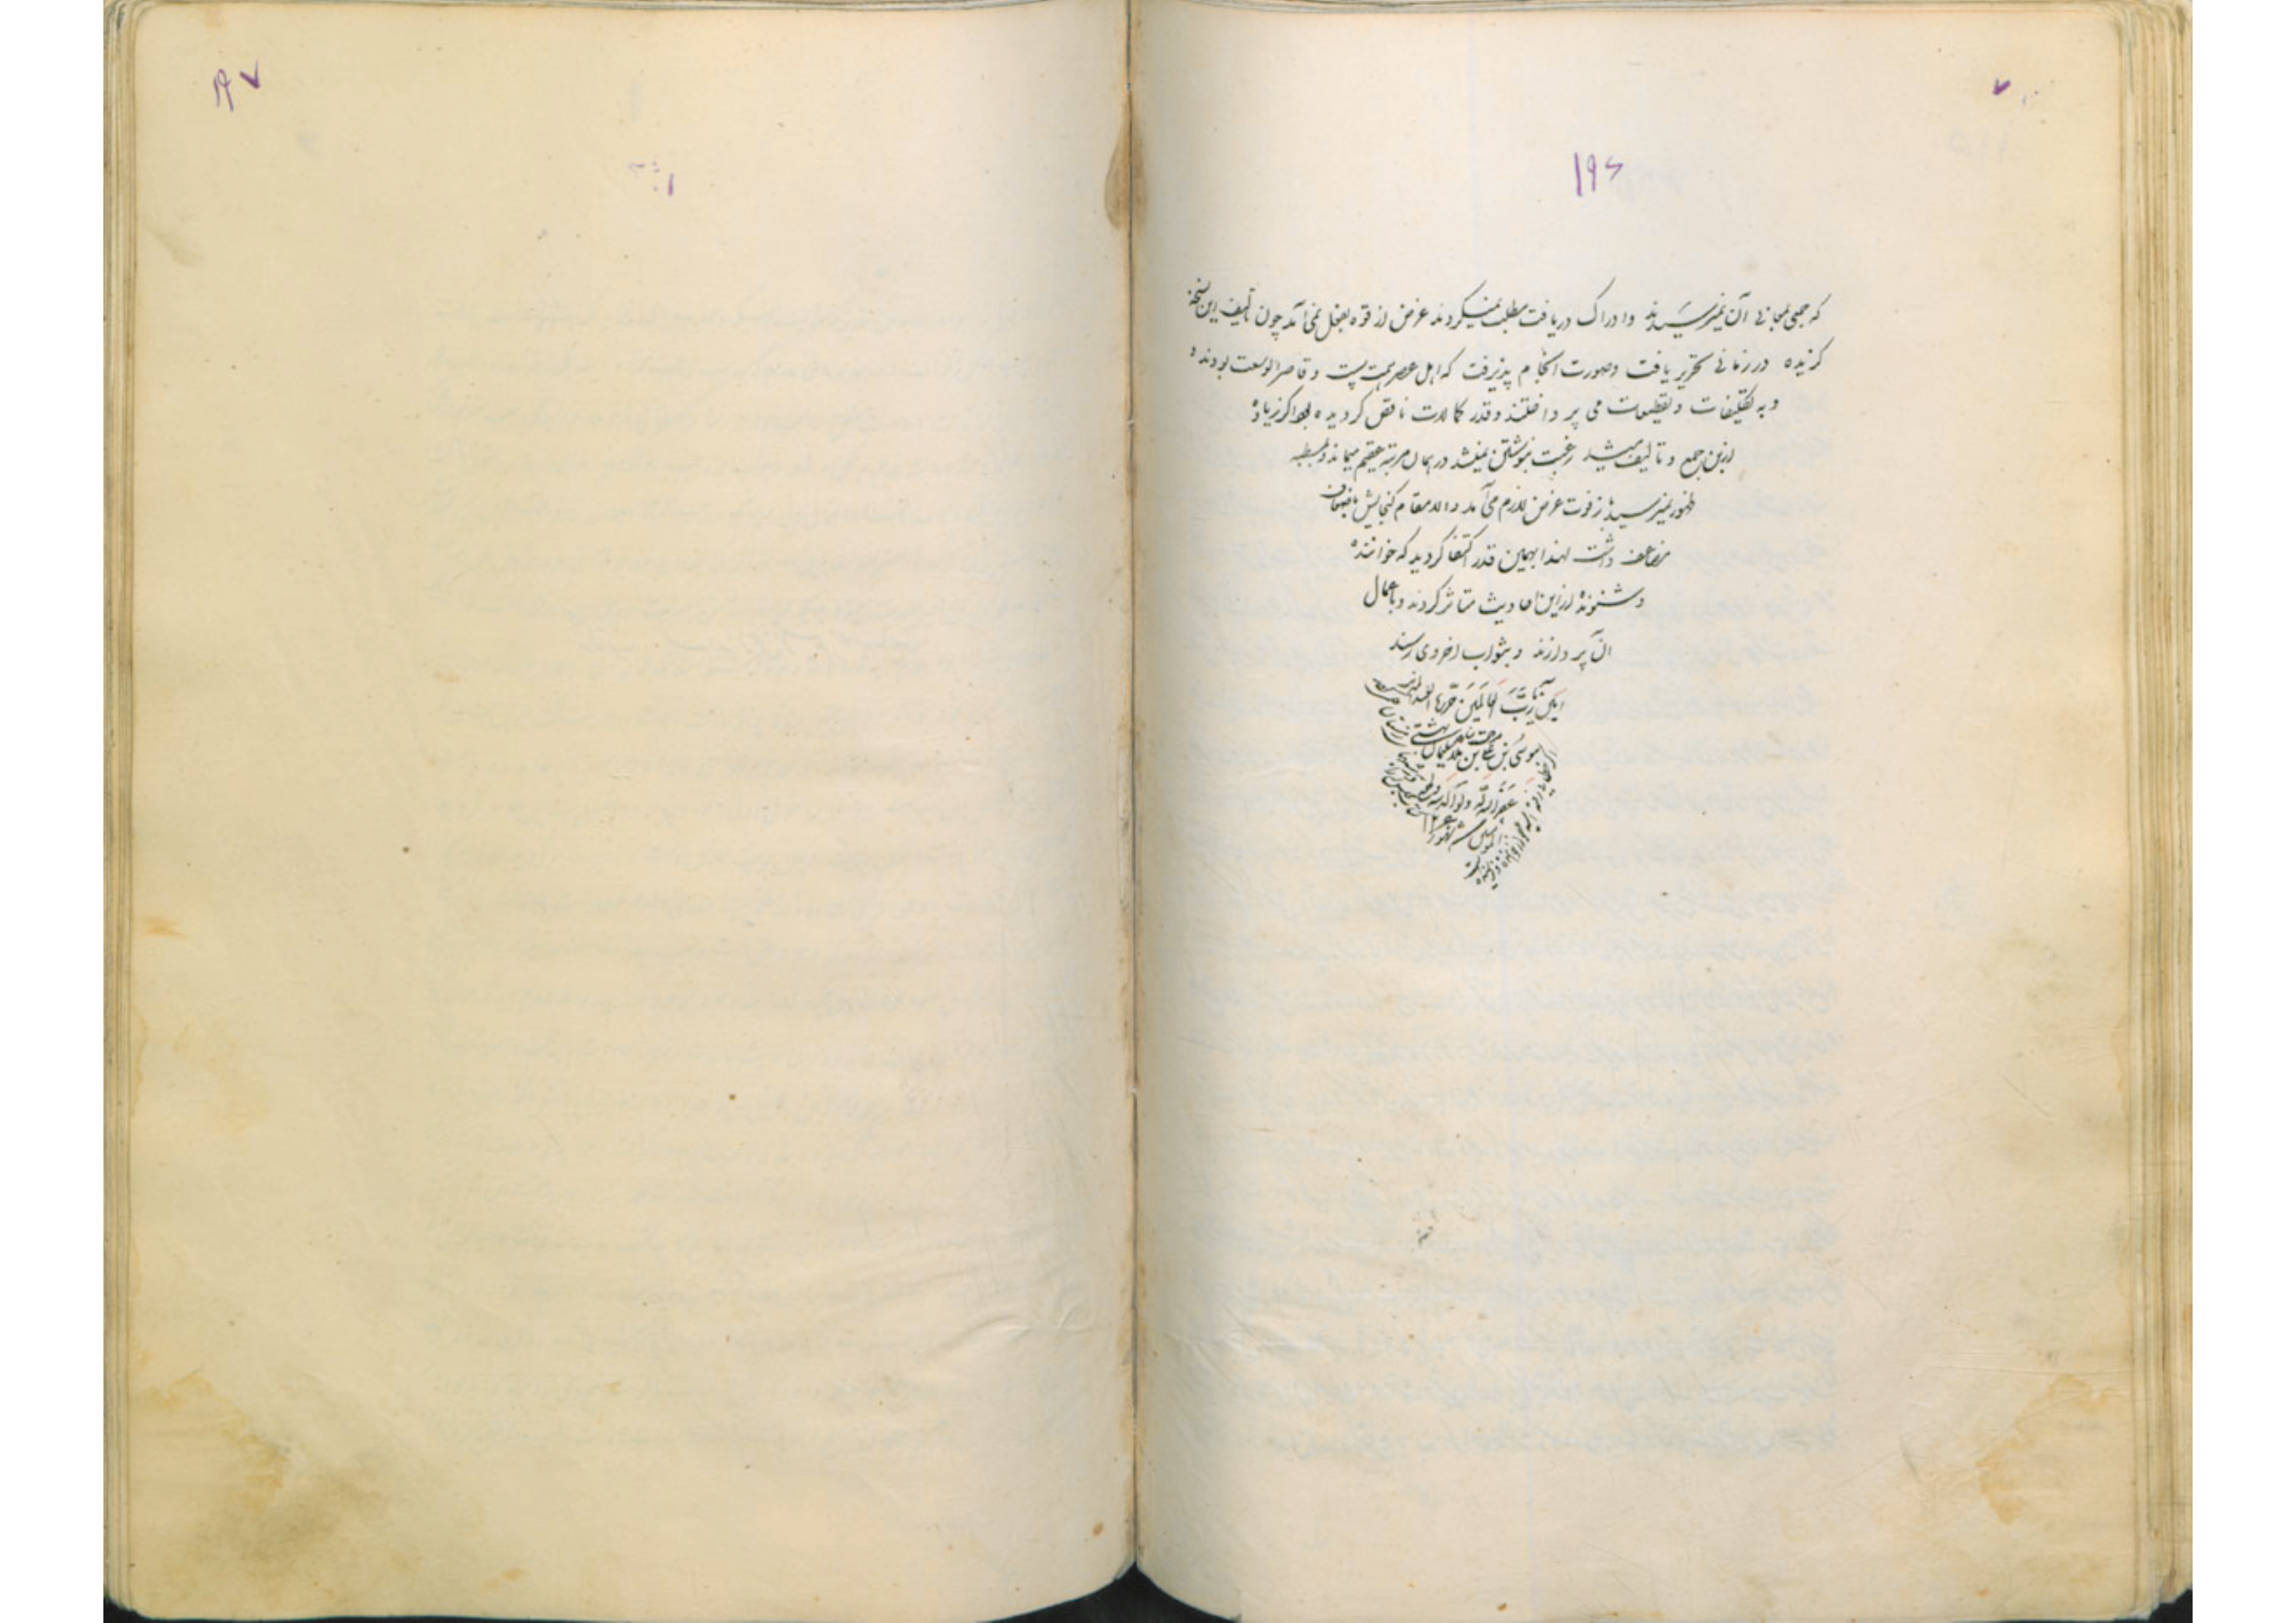 ۱۹۶
که جمعی بمعانی آن نمیرسیدند و ادراک دریافت مطلب نمیکردند غرض از قوه بفعل نمی آمد چون تألیف این نسخه
گزیده در زمانی تحریر یافت و صورت انجام پذیرفت که اهل عصر همت پست و قاصر الوسعت بودند و
و به تکلیفات و تقطیعات می پرداختند و قدر کمالات ناقص گردیده بود اگر زیاده
ازین جمع و تألیف میشد رغبت بنوشتن نمیشد در همان مرتبه عقیم میماند و
ظهور نمیرسید باز فوت غرض لازم می آمد و الا مقام گنجایش باضعاف
مضاعف داشت لهذا بهمین قدر اکتفا گردید که خواننده
و شنونده از این احادیث متاثر گردند و باعمال
آن پردازند و بثواب اخروی رسند
آمین رب العالمین حررها العبد
موسی بن علی بن سلیمان
غفر الله
۱۹۷